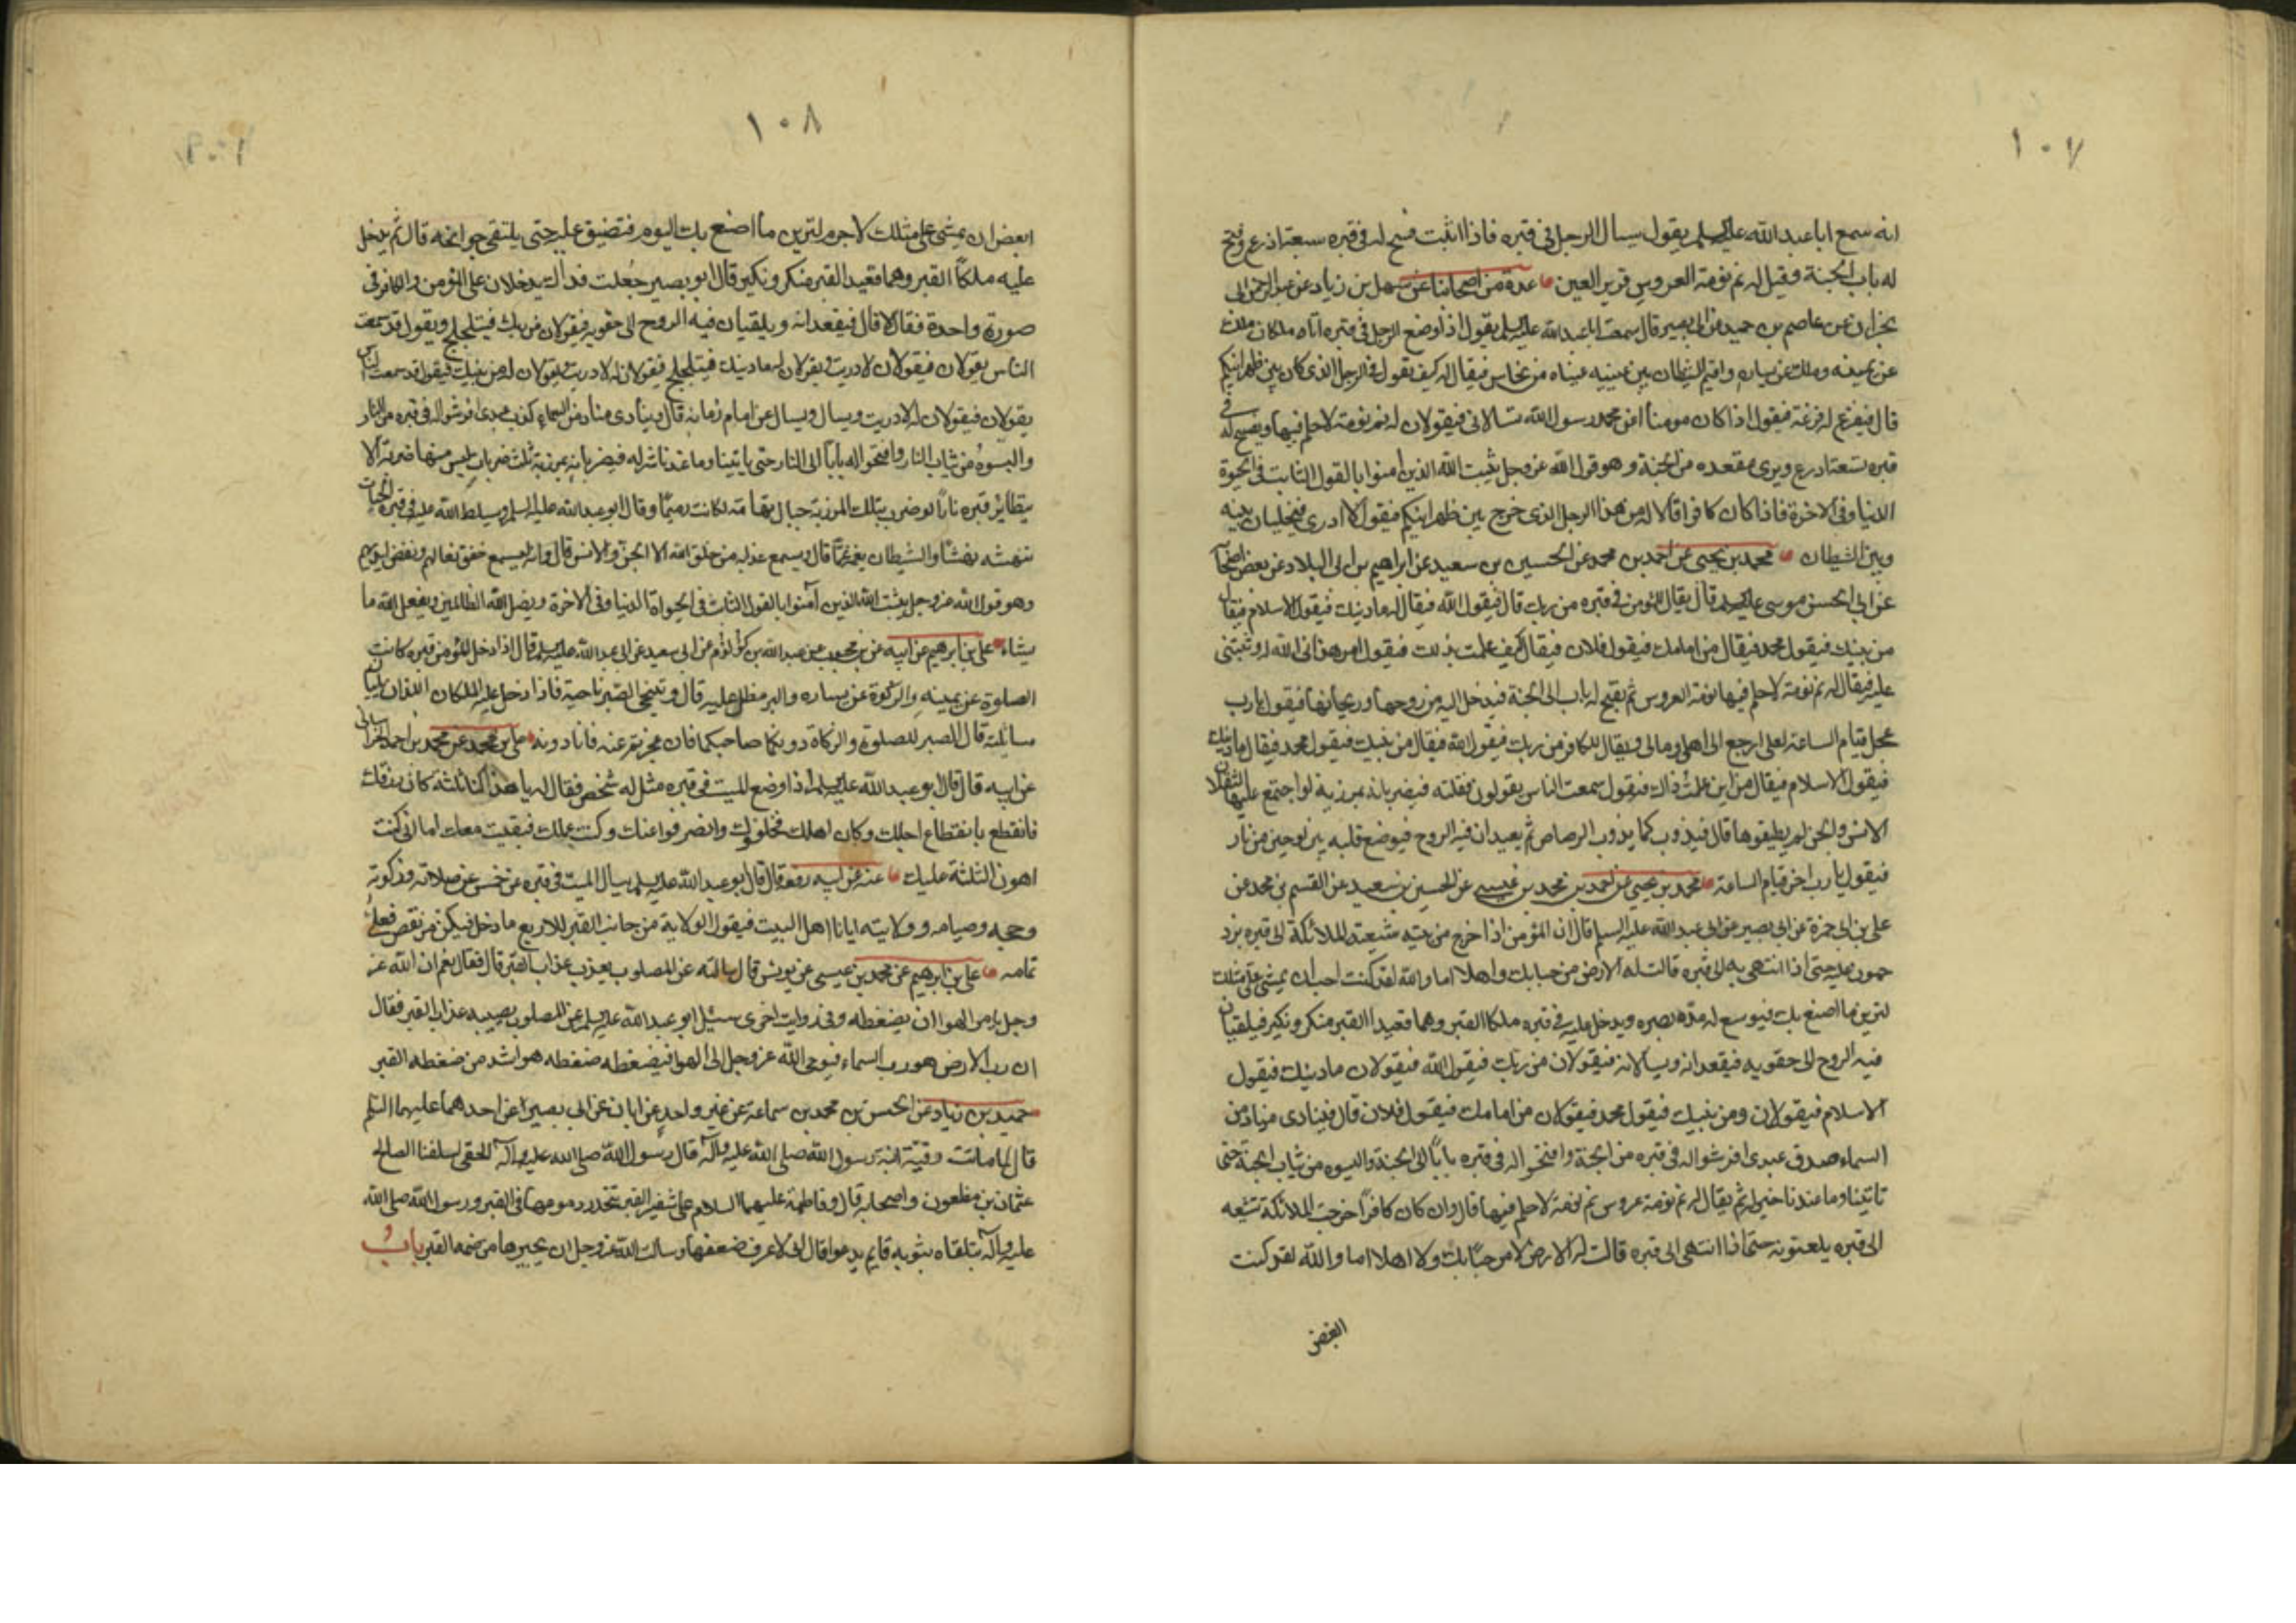 ١٠٧
انه سمع ابا عبد الله عليه السلم يقول يسال الرجل في قبره فاذا اثبت فسح له في قبره سبعة اذرع وفتح
له باب الجنة وقيل له نم نومة العروس قرير العين عدة من اصحابنا عن سهل بن زياد عن عبد الرحمن بن ابى
نجران عن عاصم بن حميد عن ابى بصير قال سمعت ابا عبد الله عليه السلم يقول اذا وضع الرجل في قبره اتاه ملكان ملك
عن يمينه وملك عن يساره واقيم الشيطان بين عينيه عيناه من نحاس فيقال له كيف تقول في الرجل الذى كان بين ظهرانيكم
قال فيفزع له فزعة فيقول اذا كان مومنا امن محمد رسول الله تسالانى فيقولان له نم نومة لا حلم فيها ويفسح له في
قبره تسعة اذرع ويرى مقعده من الجنة وهو قول الله عز وجل يثبت الله الذين امنوا بالقول الثابت في الحيوة
الدنيا وفي الاخرة فاذا كان كافرا قالا له من هذا الرجل الذى خرج بين ظهرانيكم فيقول لا ادرى فيخليان بينه
وبين الشيطان محمد بن يحيى عن احمد بن محمد عن الحسين بن سعيد عن ابراهيم بن ابى البلاد عن بعض اصحابه
عن ابى الحسن موسى عليه السلم قال يقال للمؤمن في قبره من ربك قال فيقول الله فيقال له ما دينك فيقول الاسلام فيقال
من نبيك فيقول محمد فيقال من امامك فيقول فلان فيقال كيف علمت بذلك فيقول امر هدانى الله له وثبتنى
عليه فيقال له نم نومة لا حلم فيها نومة العروس ثم يفتح له باب الى الجنة فيدخل اليه من روحها وريحانها فيقول يا رب
عجل قيام الساعة لعلى ارجع الى اهلى ومالى ويقال للكافر من ربك فيقول الله فيقال من نبيك فيقول محمد فيقال ما دينك
فيقول الاسلام فيقال من اين علمت ذلك فيقول سمعت الناس يقولون فقلته فيضربانه بمرزبة لو اجتمع عليها الثقلان
الانس والجن لم يطيقوها قال فيذوب كما يذوب الرصاص ثم يعيدان فيه الروح فيوضع قلبه بين لوحين من نار
فيقول يا رب اخر قيام الساعة محمد بن يحيى عن احمد بن محمد بن عيسى عن الحسين بن سعيد عن القسم بن محمد عن
على بن ابى حمزة عن ابى بصير عن ابى عبد الله عليه السلم قال ان المؤمن اذا اخرج من بيته شيعته الملائكة الى قبره يزد
حمون عليه حتى اذا انتهى به الى قبره قالت له الارض مرحبا بك واهلا اما والله لقد كنت احب ان يمشى على مثلك
لترين ما اصنع بك فيوسع له مد بصره ويدخل عليه في قبره ملكا القبر وهما قعيدا القبر منكر ونكير فيلقيان
فيه الروح الى حقويه فيقعدانه ويسالانه فيقولان من ربك فيقول الله فيقولان ما دينك فيقول
الاسلام فيقولان ومن نبيك فيقول محمد فيقولان من امامك فيقول فلان قال فينادى مناد من
السماء صدق عبدى افرشوا له في قبره من الجنة وافتحوا له في قبره بابا الى الجنة والبسوه من ثياب الجنة حتى
تاتينا وما عندنا خير له ثم يقال له نم نومة عروس نم نومة لا حلم فيها قال وان كان كافرا خرجت الملائكة تشيعه
الى قبره يلعنونه حتى اذا انتهى الى قبره قالت له الارض لا مرحبا بك ولا اهلا اما والله لقد كنت
ابغض
١٠٨
ابغض ان يمشى على مثلك لا جرم لترين ما اصنع بك اليوم فتضيق عليه حتى يلتقى جوانحه قال ثم يدخل
عليه ملكا القبر وهما قعيدا القبر منكر ونكير قال ابو بصير جعلت فداك يدخلان على المؤمن والكافر في
صورة واحدة فقال لا قال فيقعدانه ويلقيان فيه الروح الى حقويه فيقولان من ربك فيتلجلج ويقول قد سمعت
الناس يقولان فيقولان لا دريت ويقولان له ما دينك فيتلجلج فيقولان له لا دريت ويقولان له من نبيك فيقول قد سمعت الناس
يقولان فيقولان له لا دريت ويسال ويسال عن امام زمانه قال وينادى مناد من السماء كذب عبدى افرشوا له في قبره من النار
والبسوه من ثياب النار وافتحوا له بابا الى النار حتى ياتينا وما عندنا شر له فيضربانه بمرزبة ثلث ضربات ليس منها ضربة الا
يتطاير قبره نارا لو ضرب بتلك المرزبة جبال تهامة لكانت رميما وقال ابو عبد الله عليه السلم ويسلط الله عليه في قبره الحيات
تنهشه نهشا والشيطان يغمه غما قال ويسمع عذابه من خلق الله الا الجن والانس قال وانه ليسمع خفق نعالهم ونفض ايديهم
وهو قول الله عز وجل يثبت الله الذين آمنوا بالقول الثابت في الحيواة الدنيا وفي الاخرة ويضل الله الظالمين ويفعل الله ما
يشاء على بن ابرهيم عن ابيه عن بن محبوب عن عبد الله بن كولوم عن ابى سعيد عن ابى عبد الله عليه السلم قال اذا دخل المؤمن قبره كانت
الصلوة عن يمينه والزكوة عن يساره والبر مطل عليه قال وتنحى الصبر ناحية فاذا دخل عليه الملكان اللذان يليان
مسائلته قال الصبر للصلوة والزكاة دونكما صاحبكما فان عجزتم عنه فانا دونه على بن محمد عن محمد بن احمد الخراسانى
عن ابيه قال قال ابو عبد الله عليه السلم اذا وضع الميت في قبره مثل له شخص فقال له يا هذا كنا ثلثة كان رزقك
فانقطع بانقطاع اجلك وكان اهلك فخلفوك وانصرفوا عنك وكنت عملك فبقيت معك اما انى كنت
اهون الثلثة عليك عنه عن ابيه رفعه قال قال ابو عبد الله عليه السلم يسال الميت في قبره عن خمس عن صلاته وزكوته
وحجه وصيامه وولايته ايانا اهل البيت فيقول الولاية من جانب القبر للاربع ما دخل فيكن من نقص فعلى
تمامه على بن ابرهيم عن محمد بن عيسى عن يونس قال سالته عن المصلوب يعذب عذاب القبر قال فقال نعم ان الله عز
وجل يامر الهوا ان يضغطه وفي رواية اخرى سئل ابو عبد الله عليه السلم عن المصلوب يصيبه عذاب القبر فقال
ان رب الارض هو رب السماء فيوحى الله عز وجل الى الهوا فيضغطه ضغطه هو اشد من ضغطه القبر
حميد بن زياد عن الحسن بن محمد بن سماعة عن غير واحد عن ابان عن ابى بصير عن احدهما عليهما السلم
قال لما ماتت رقية ابنة رسول الله صلى الله عليه وآله قال رسول الله صلى الله عليه وآله الحقى بسلفنا الصالح
عثمان بن مظعون واصحابه قال وفاطمة عليهما السلام على شفير القبر تنحدر دموعها في القبر ورسول الله صلى الله
عليه وآله يتلقاه بثوبه قايم يدعوا قال انى لاعرف ضعفها وسالت الله عز وجل ان يجيرها من ضمة القبر باب
١٠٩